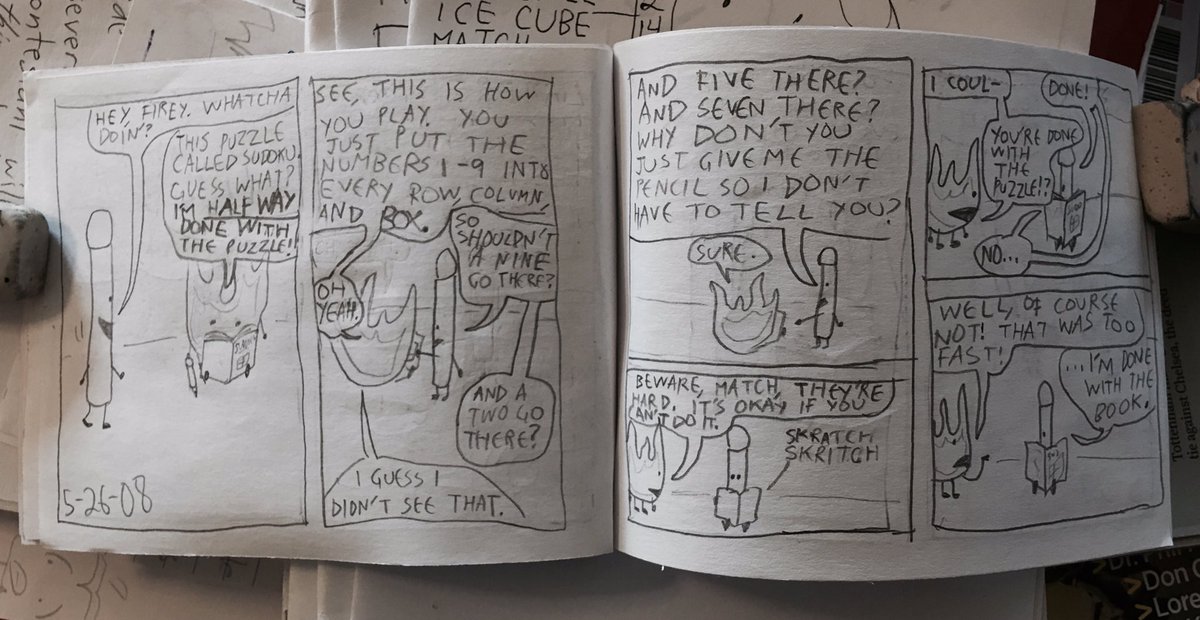 ICE CUBE
MATCH
2
14
HEY, FIREY. WHATCHA
DOIN'?
THIS PUZZLE
CALLED SUDOKU.
GUESS WHAT?
I'M HALFWAY
DONE WITH
THE PUZZLE!!
5-26-08
SEE, THIS IS HOW
YOU PLAY. YOU
JUST PUT THE
NUMBERS 1-9 INTO
EVERY ROW, COLUMN,
AND BOX.
SO
SHOULDN'T
A NINE
GO THERE?
OH
YEAH.
AND A
TWO GO
THERE?
I GUESS I
DIDN'T SEE THAT.
AND FIVE THERE?
AND SEVEN THERE?
WHY DON'T YOU
JUST GIVE ME THE
PENCIL SO I DON'T
HAVE TO TELL YOU?
SURE.
BEWARE, MATCH, THEY'RE
HARD. IT'S OKAY IF YOU
CAN'T DO IT.
SKRATCH
SKRITCH
I COUL-
DONE!
YOU'RE DONE
WITH
THE
PUZZLE!?
NO...
WELL, OF COURSE
NOT! THAT WAS TOO
FAST!
...I'M DONE
WITH THE
BOOK.
>Don
>Lore